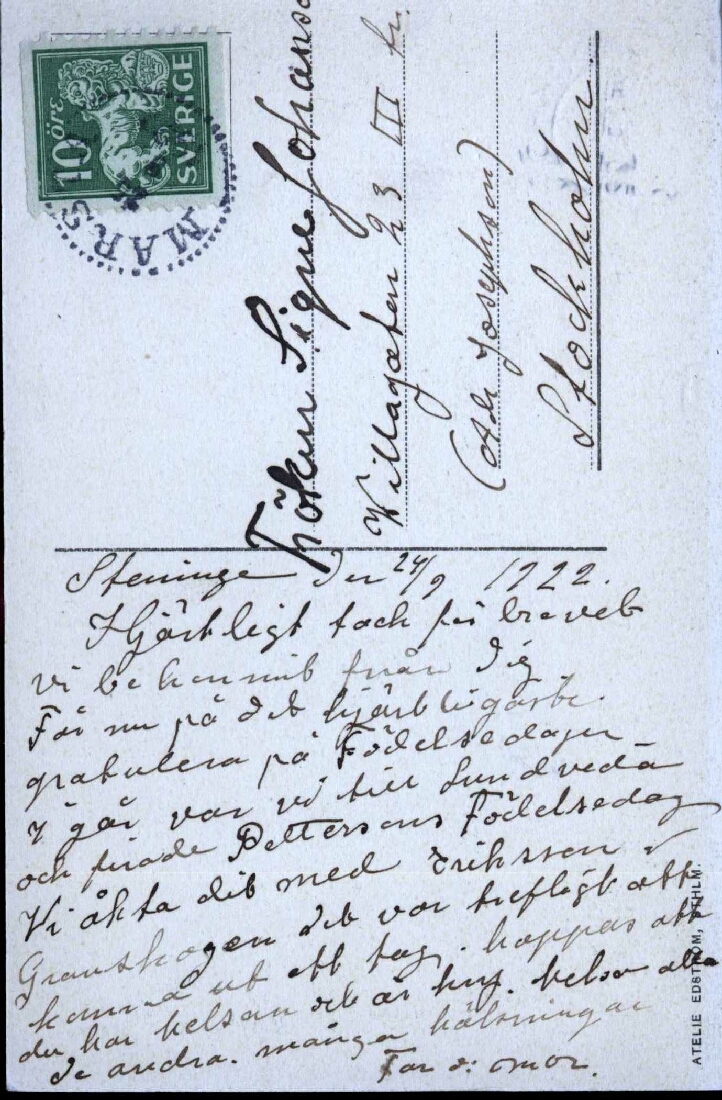 10 ÖRE
SVERIGE
MARS
Fröken Signe Johans
Villagatan 23 III tr.
(Adr Josephson)
Stockholm.
Steninge den 24/9 1922.
Hjärtligt tack för brevet
vi bekommit från dig
Får nu på det hjärtligaste
gratulera på Födelsedagen
I går var vi till Lundveda
och firade Pettersons Födelsedag
Vi åkta dit med Eriksson i
Granskogen det var trefligt att
komma ut ett tag. hoppas att
du har helsan och är kry. helsa alla
de andra. många hälsningar
Far o: mor.
ATELIE EDSTRÖM, STHLM.